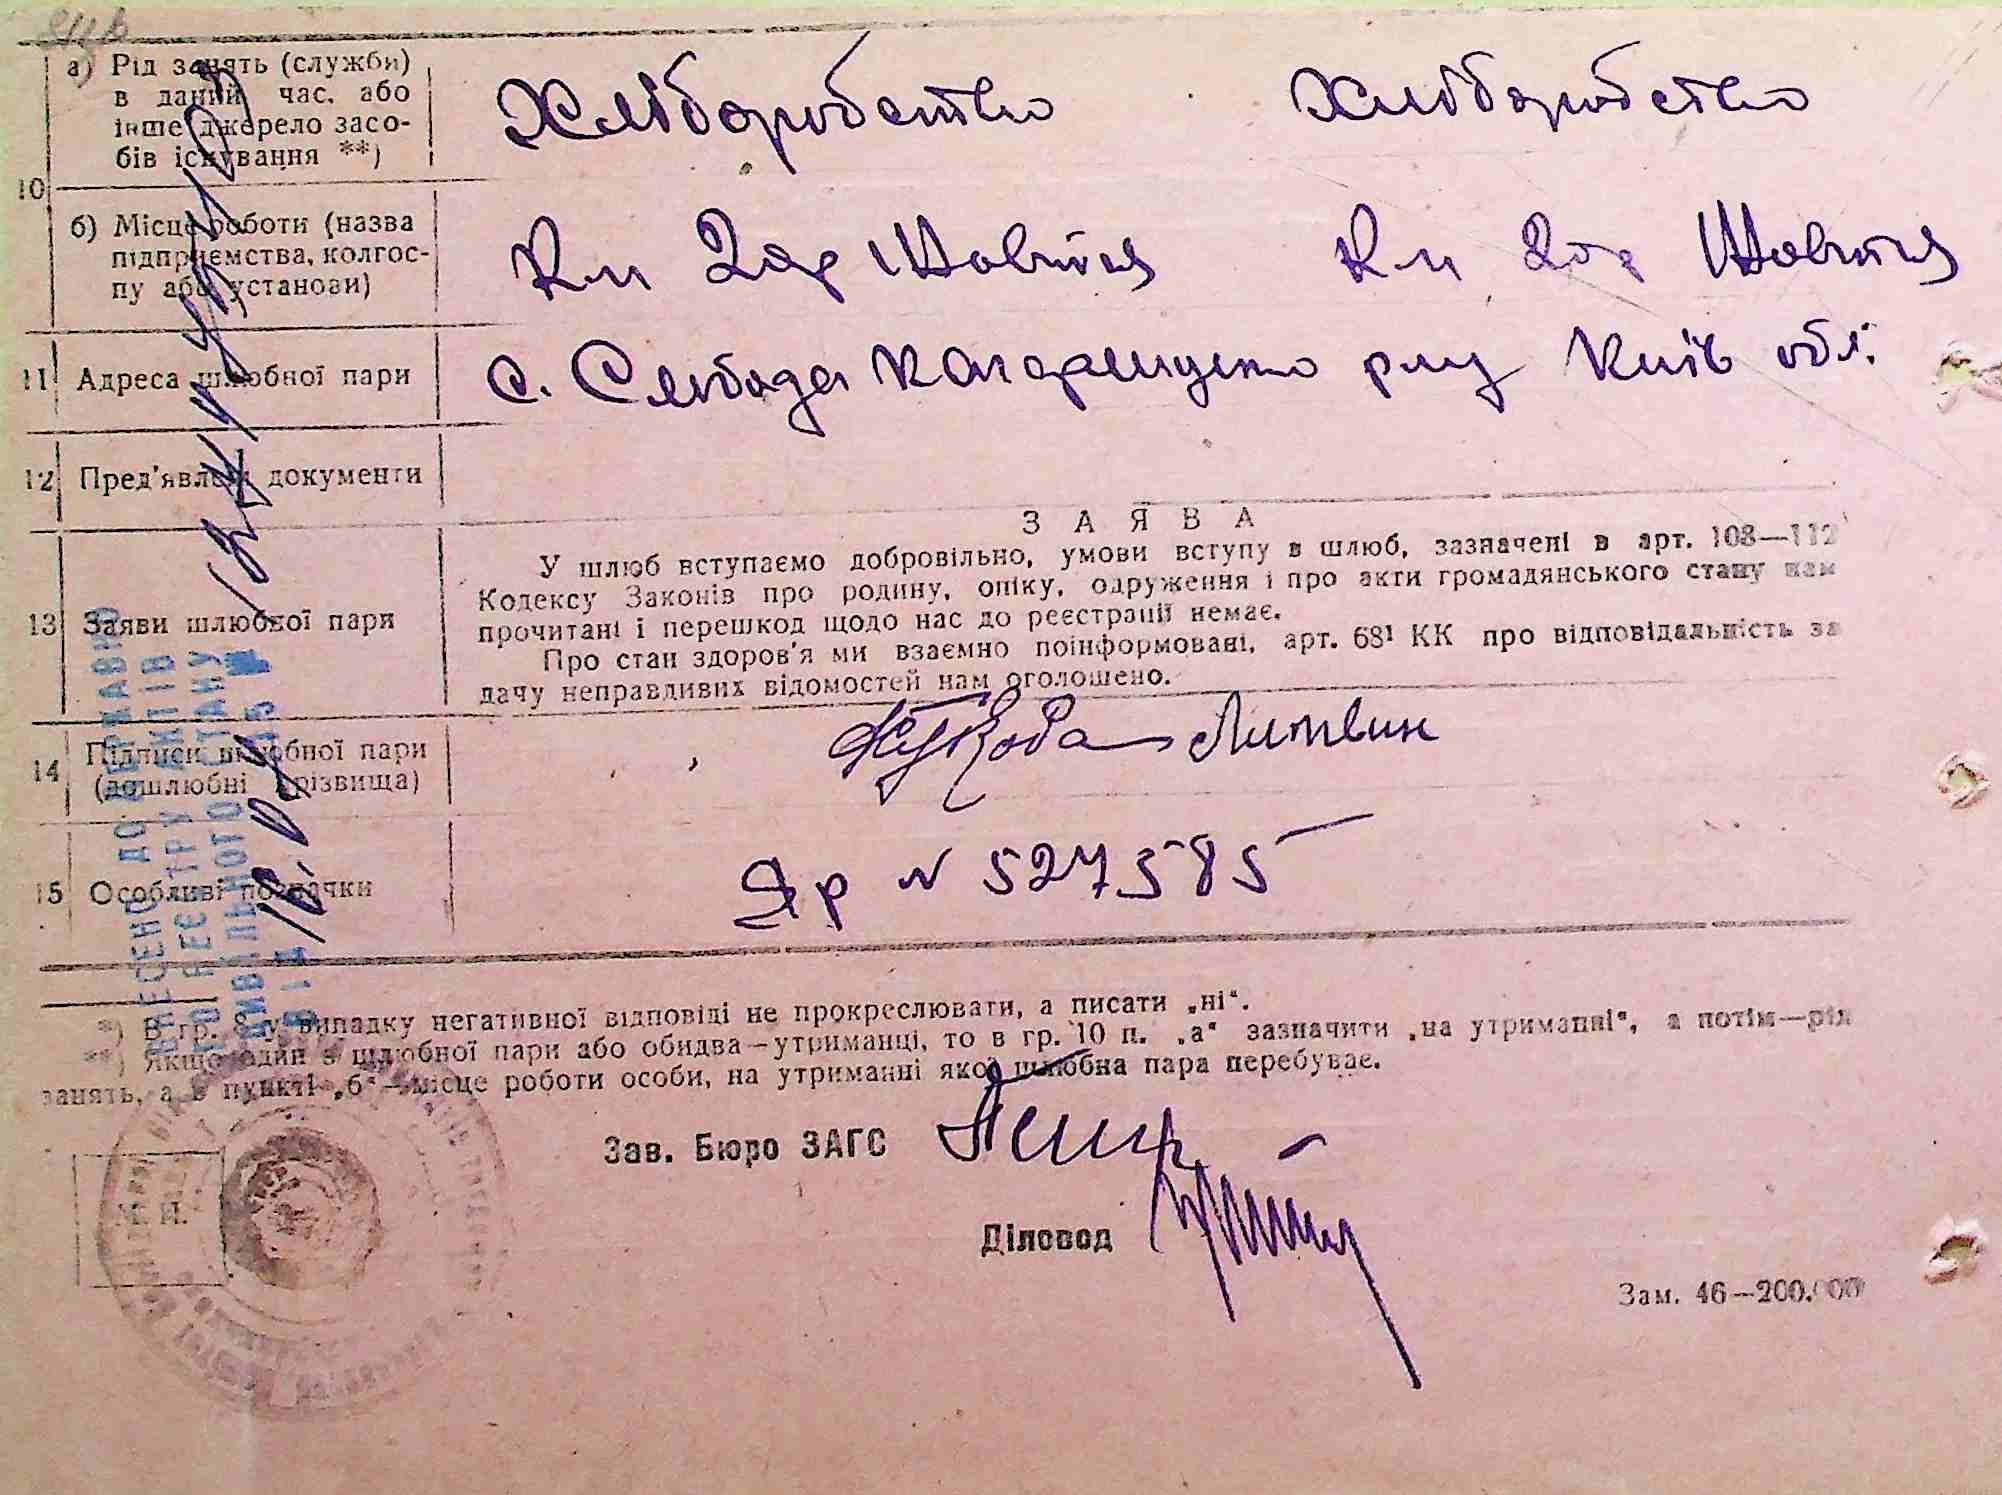 а) Рід занять (служби) в даний час, або інше джерело засобів існування **)
Хліборобство Хліборобство
10
б) Місце роботи (назва підприємства, колгоспу або установи)
Кл 2ор Жовтня Кл 2ор Жовтня
11 Адреса шлюбної пари
с. Слобода Кагарлицько р-ну Київ обл.
12 Пред'явлені документи
З А Я В А
13 Заяви шлюбної пари
У шлюб вступаємо добровільно, умови вступу в шлюб, зазначені в арт. 108—112
Кодексу Законів про родину, опіку, одруження і про акти громадянського стану нам
прочитані і перешкод щодо нас до реєстрації немає.
Про стан здоров'я ми взаємно поінформовані, арт. 68¹ КК про відповідальність за
дачу неправдивих відомостей нам оголошено.
14 Підписи шлюбної пари (дошлюбні прізвища)
Литвин
15 Особливі позначки
Яр N 527585
*) В гр. 8 у випадку негативної відповіді не прокреслювати, а писати „ні“.
**) Якщо один з шлюбної пари або обидва—утриманці, то в гр. 10 п. „а“ зазначити „на утриманні“, а потім—рід
занять, а в пункті „б“—місце роботи особи, на утриманні якої шлюбна пара перебуває.
Зав. Бюро ЗАГС
М. П.
Діловод
Зам. 46—200.000
ВНЕСЕНО ДО ДЕРЖАВНОГО
РЕЄСТРУ АКТІВ
ЦИВІЛЬНОГО СТАНУ
ВІД